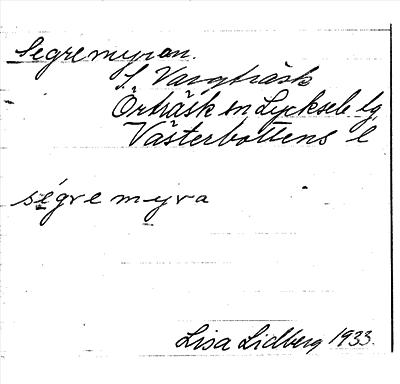 Segremyran.
S. Vargträsk
Örträsk sn Lycksele lg
Västerbottens l
ségremyra
Lisa Lidberg 1933.